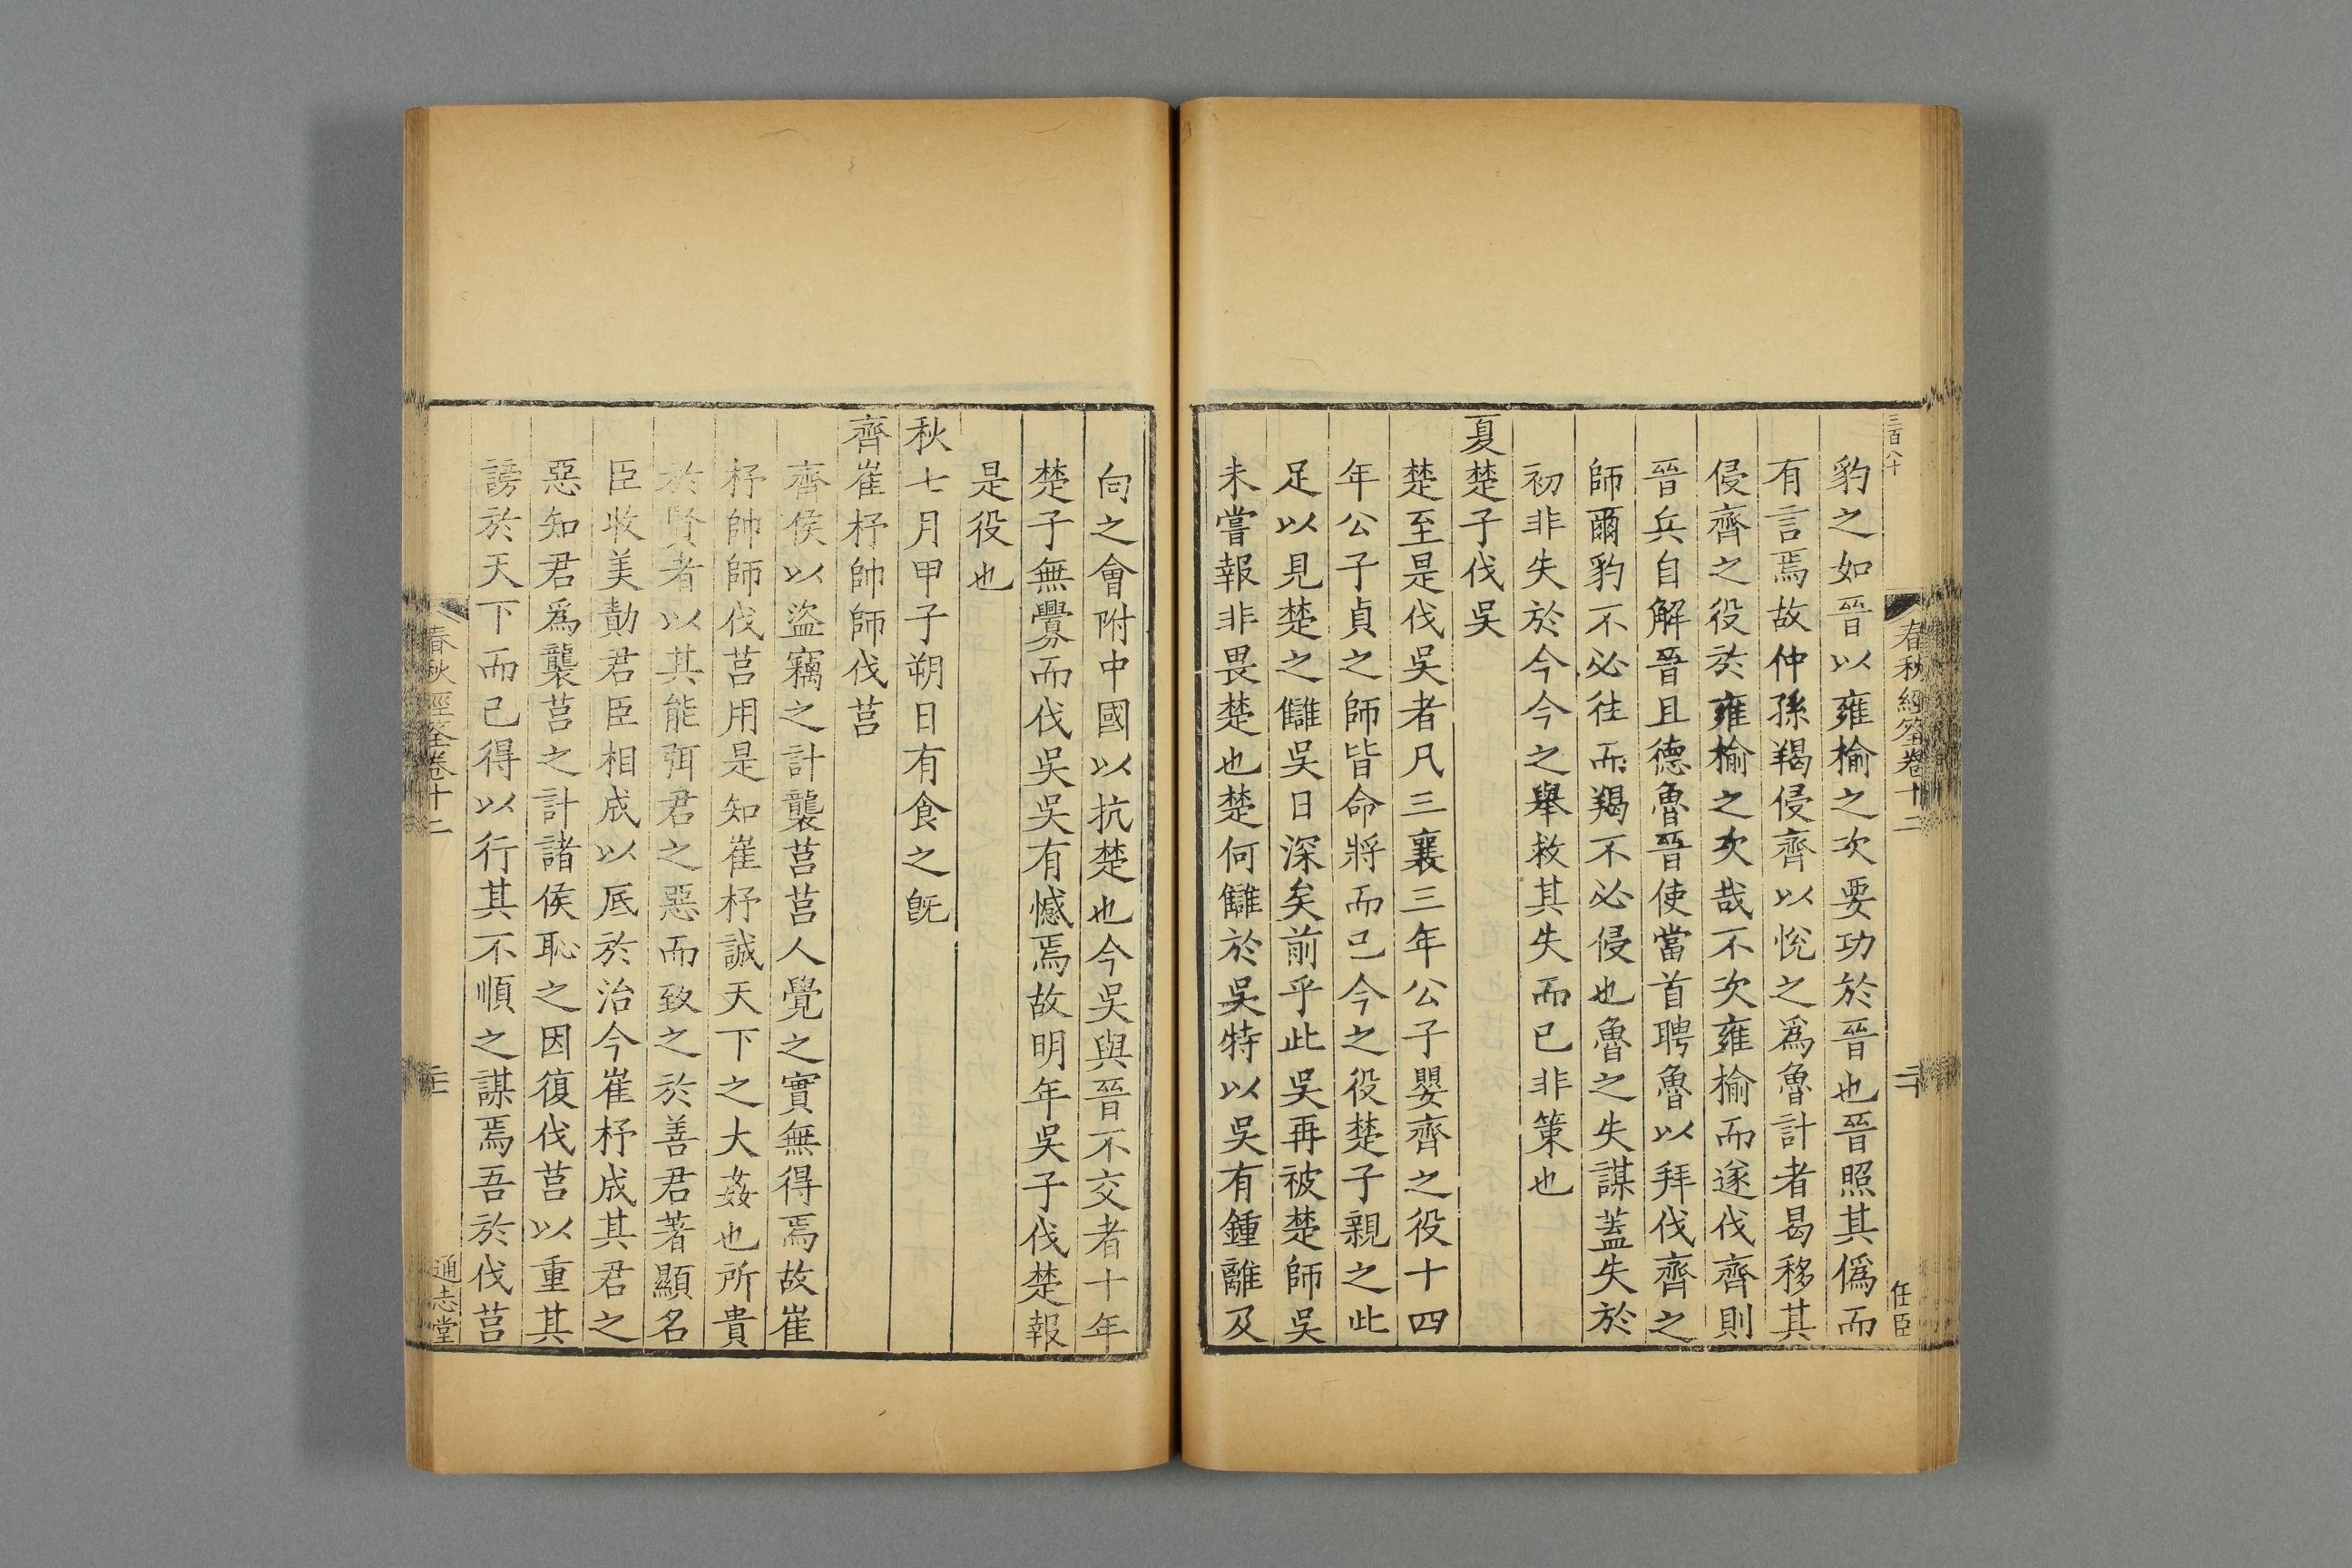 三百八十
春秋經筌卷十二
二十
任臣
豹之如晉以雍榆之次要功於晉也晉照其僞而
有言焉故仲孫羯侵齊以悅之爲魯計者曷移其
侵齊之役於雍榆之次哉不次雍榆而遂伐齊則
晉兵自解晉且德魯晉使當首聘魯以拜伐齊之
師爾豹不必往而羯不必侵也魯之失謀蓋失於
初非失於今今之舉救其失而已非策也
夏楚子伐吳
楚至是伐吳者凡三襄三年公子嬰齊之役十四
年公子貞之師皆命將而已今之役楚子親之此
足以見楚之讎吳日深矣前乎此吳再被楚師吳
未嘗報非畏楚也楚何讎於吳特以吳有鍾離及
向之會附中國以抗楚也今吳與晉不交者十年
楚子無釁而伐吳吳有憾焉故明年吳子伐楚報
是役也
秋七月甲子朔日有食之旣
齊崔杼帥師伐莒
齊侯以盜竊之計襲莒莒人覺之實無得焉故崔
杼帥師伐莒用是知崔杼誠天下之大姦也所貴
於賢者以其能弭君之惡而致之於善君著顯名
臣收美勣君臣相成以底於治今崔杼成其君之
惡知君爲襲莒之計諸侯恥之因復伐莒以重其
謗於天下而已得以行其不順之謀焉吾於伐莒
春秋經筌卷十二
通志堂